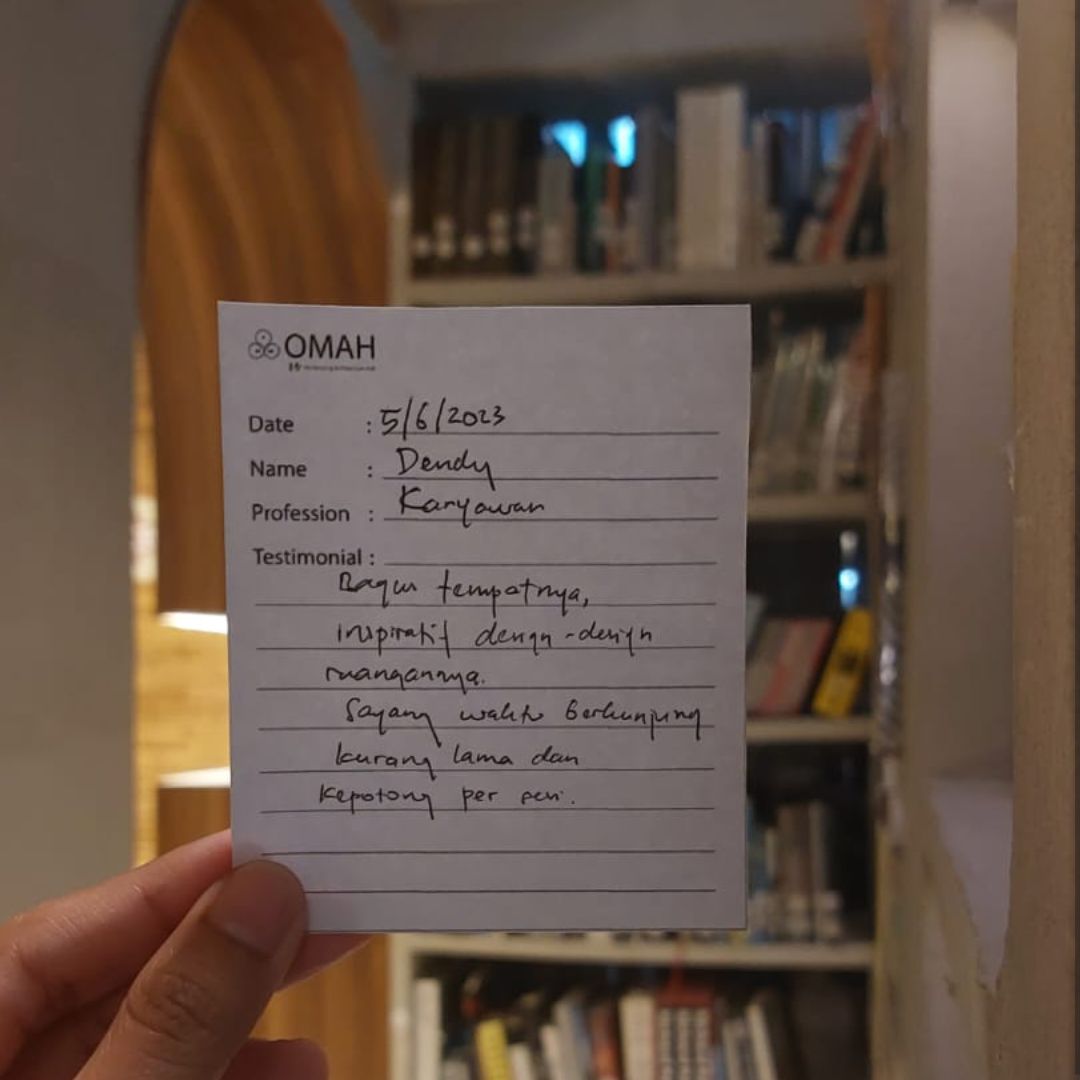 OMAH
Date : 5/6/2023
Name : Dendy
Profession : Karyawan
Testimonial :
Bagus tempatnya,
inspiratif design-design
ruangannya.
Sayang waktu berkunjung
kurang lama dan
kepotong per sesi.